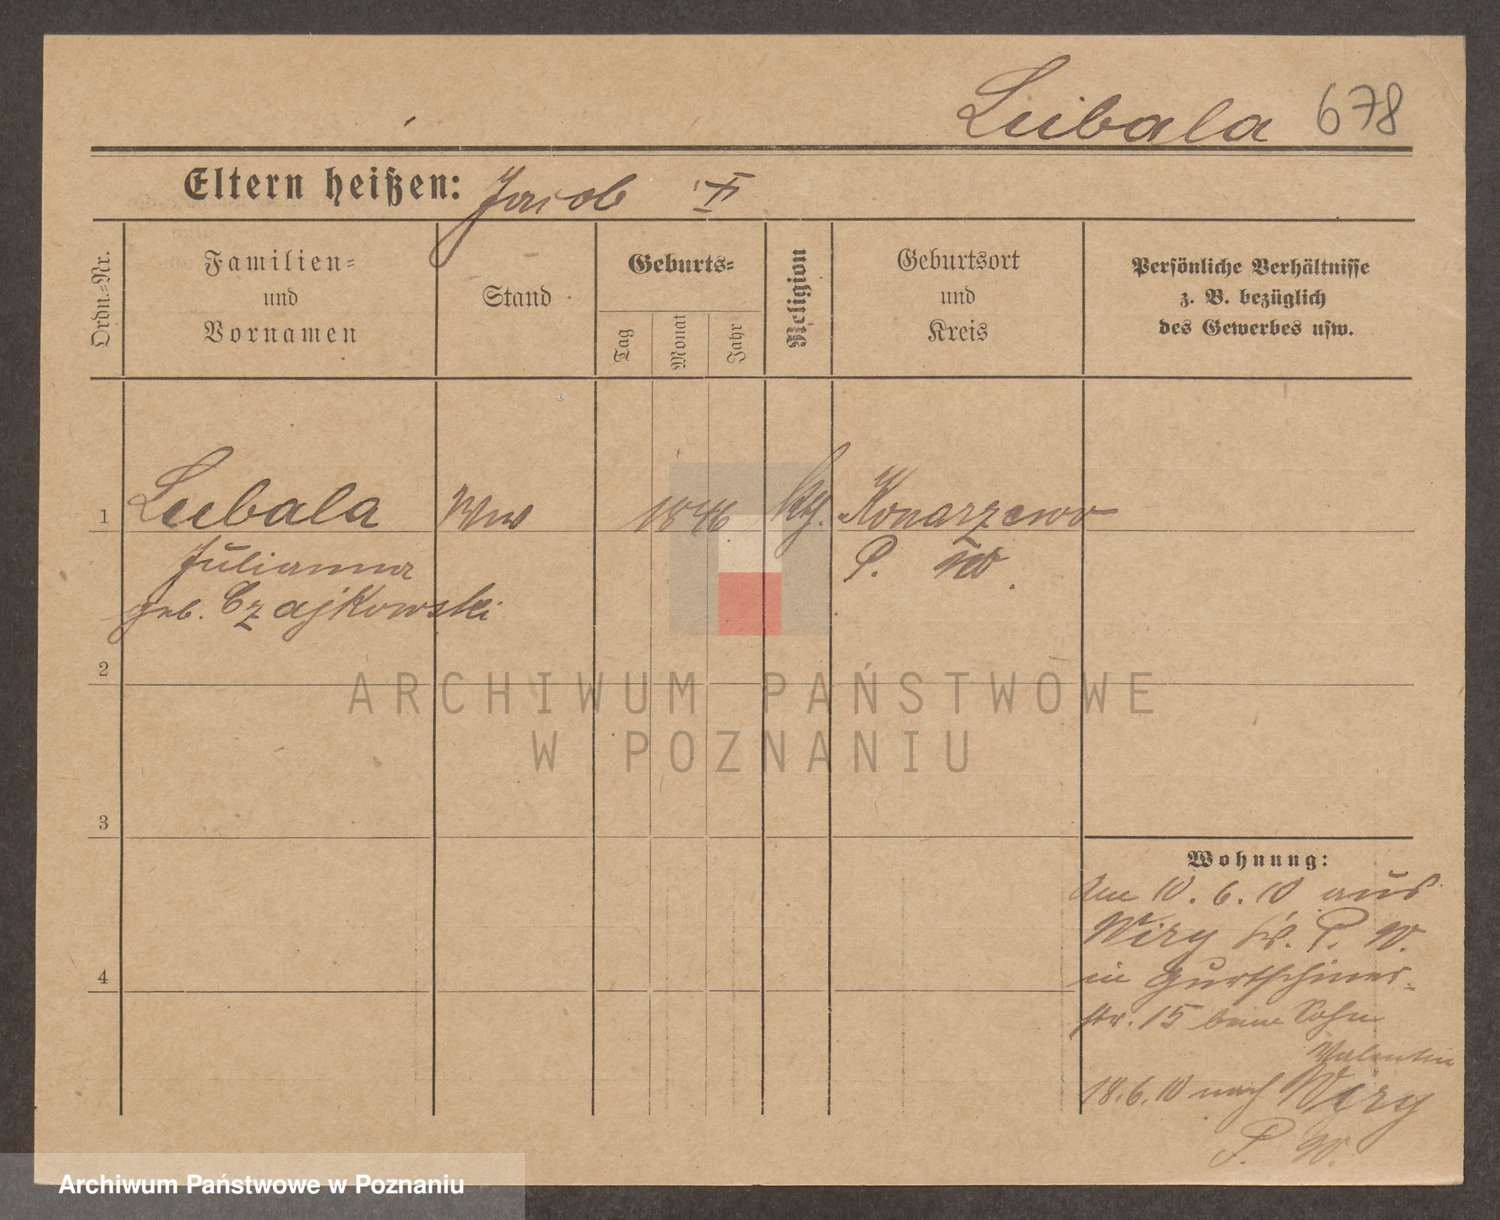 Lubala 678
Eltern heißen: Jacob II
Ordn.-Nr.
Familien-
und
Vornamen
Stand
Geburts-
Tag
Monat
Jahr
Religion
Geburtsort
und
Kreis
Persönliche Verhältnisse
z. B. bezüglich
des Gewerbes usw.
1 Lubala Ww 1846 Konarzewo
Julianna P. W.
geb. Czajkowski
2
ARCHIWUM PAŃSTWOWE
W POZNANIU
3
Wohnung:
Am 10.6.10 aus
Wiry Kr. P. W.
4
in Gurtschiner-
str. 15 beim Sohn
Valentin
18.6.10 nach Wiry
P. W.
Archiwum Państwowe w Poznaniu